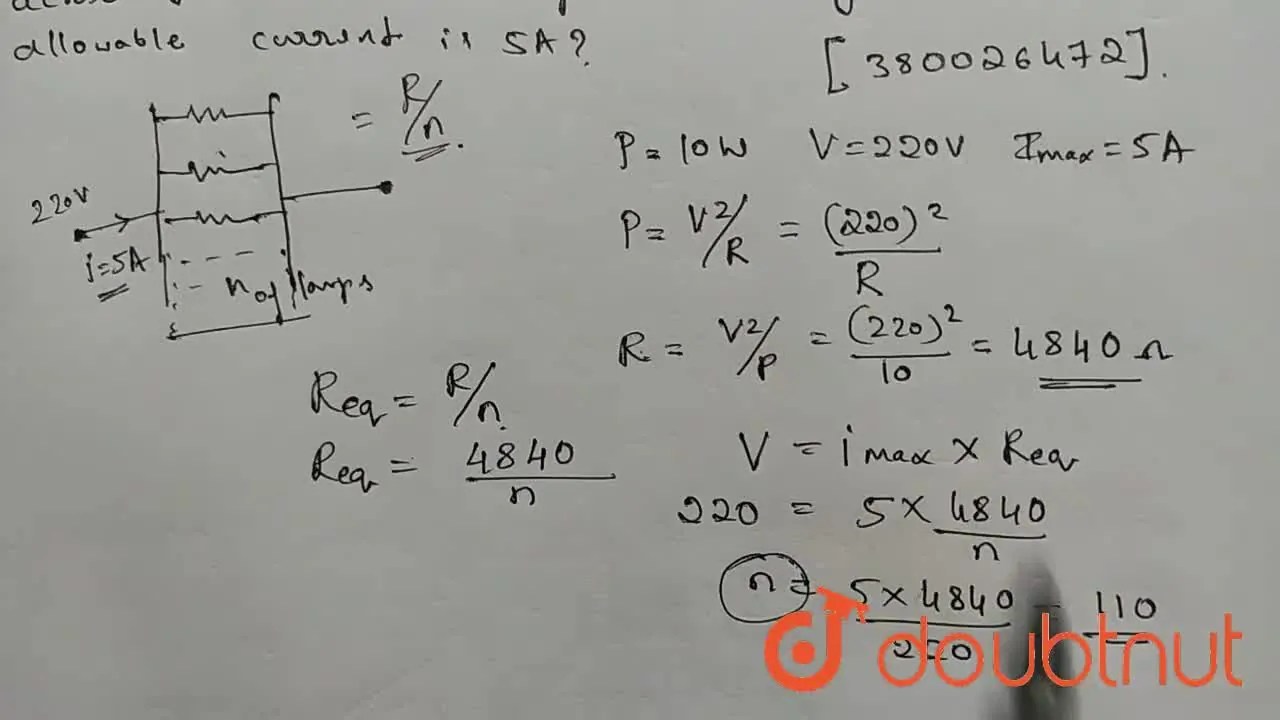 allowable current is 5A?
[380026472].
= R/n.
220V
i=5A
n of lamps
P = 10W V = 220V Imax = 5A
P = V²/R = (220)²/R
R = V²/P = (220)²/10 = 4840 Ω
Req = R/n.
Req = 4840/n
V = imax × Req
220 = 5 × 4840/n
n = 5 × 4840/220 = 110
doubtnut